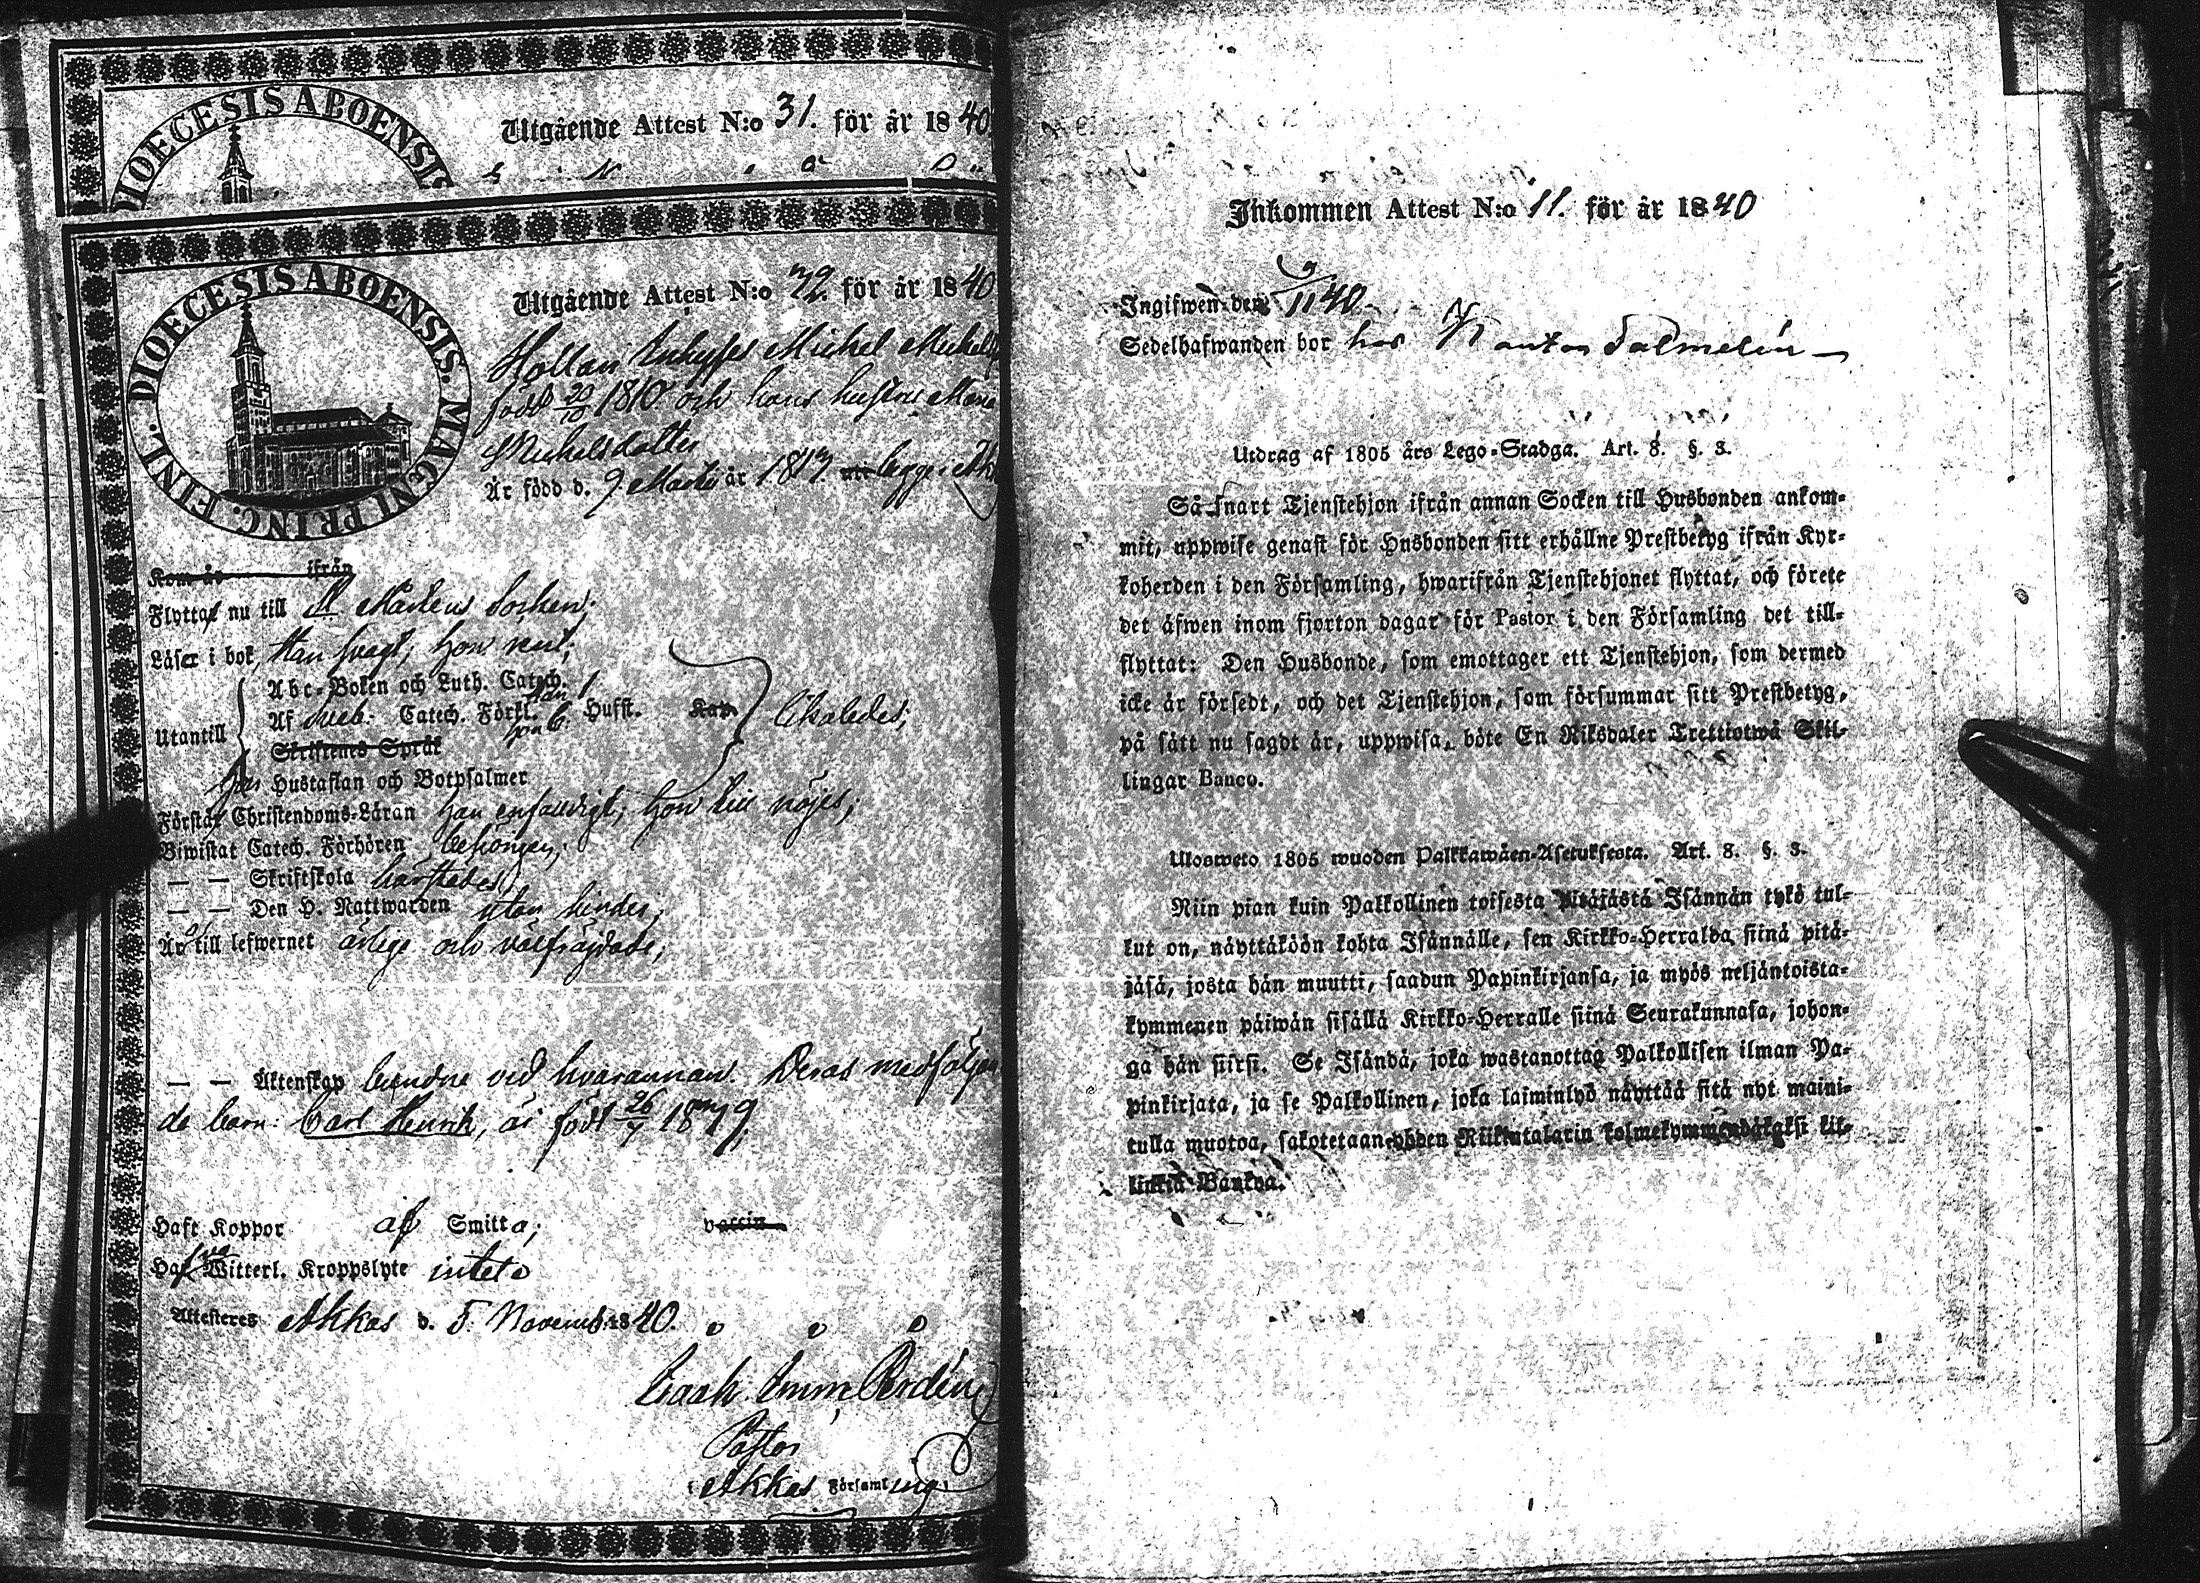 DIOECESIS ABOENSIS
Utgående Attest N:o 31. för år 1840
DIOECESIS ABOENSIS. MAGNI PRINC. FINL.
Utgående Attest N:o 72. för år 1840
Inhyses Michel Michels
född 20/10 1810 och hans hustru
Michelsdotter
Är född d. 9 Martii år 1813.
Kom år ifrån
Flyttat nu till St Mårtens Socken;
Läser i bok, Han svagt; hon rent;
Abc-Boken och Luth. Catech.
Utantill Af Sveb. Catech. Förkl. han 1 hon 6 Hufst. Kap. likaledes;
Skriftenes Språk
hon Hustaflan och Botpsalmer
Förstår Christendoms-Läran han enfaldigt; hon till nöjes;
Biwistat Catech. Förhören behörigen;
— — Skriftskola härstädes;
— — Den H. Nattwarden utan hinder;
Är till lefwernet ärlige och välfrägdade;
— — Äktenskap bundne vid hvarannan. Deras medföljan
de barn: Carl Henrik, är född 26/7 1839;
Haft Koppor af Smitta; vaccin.
Hafva Witterl. Kroppslyte intet.
Attesteres Akkas d. 5. Novemb. 1840.
Isaak Emm. Perdén
Pastor
i Akkas Församling.
Inkommen Attest N:o 11. för år 1840
Ingifwen den 9/11 40.
Sedelhafwanden bor hos Kantor Palmelin
Utdrag af 1805 års Lego-Stadga. Art. 8. §. 3.
Så snart Tjenstehjon ifrån annan Socken till Husbonden ankom-
mit, uppwise genast för Husbonden sitt erhållne Prestbetyg ifrån Kyr-
koherden i den Församling, hwarifrån Tjenstehjonet flyttat, och förete
det äfwen inom fjorton dagar för Pastor i den Församling det till-
flyttat: Den Husbonde, som emottager ett Tjenstehjon, som dermed
icke är försedt, och det Tjenstehjon, som försummar sitt Prestbetyg,
på sätt nu sagdt är, uppwisa, böte En Riksdaler Trettiotwå Skil-
lingar Banco.
Ulosweto 1805 wuoden Palkkawäen-Asetuksesta. Art. 8. §. 3.
Niin pian kuin Palkollinen toisesta pitäjästä Isännän tykö tul-
kut on, näyttäköön kohta Isännälle, sen Kirkko-Herralda siinä pitä-
jäsä, josta hän muutti, saadun Papinkirjansa, ja myös neljäntoista-
kymmenen päiwän sisällä Kirkko-Herralle siinä Seurakunnasa, johon-
ga hän siirsi. Se Isändä, joka wastanottaa Palkollisen ilman Pa-
pinkirjata, ja se Palkollinen, joka laiminlyö näyttää sitä nyt maini-
tulla muotoa, sakotetaan yhden Riikintalarin kolmekymmendäkaksi kil-
linkiä Bankoa.